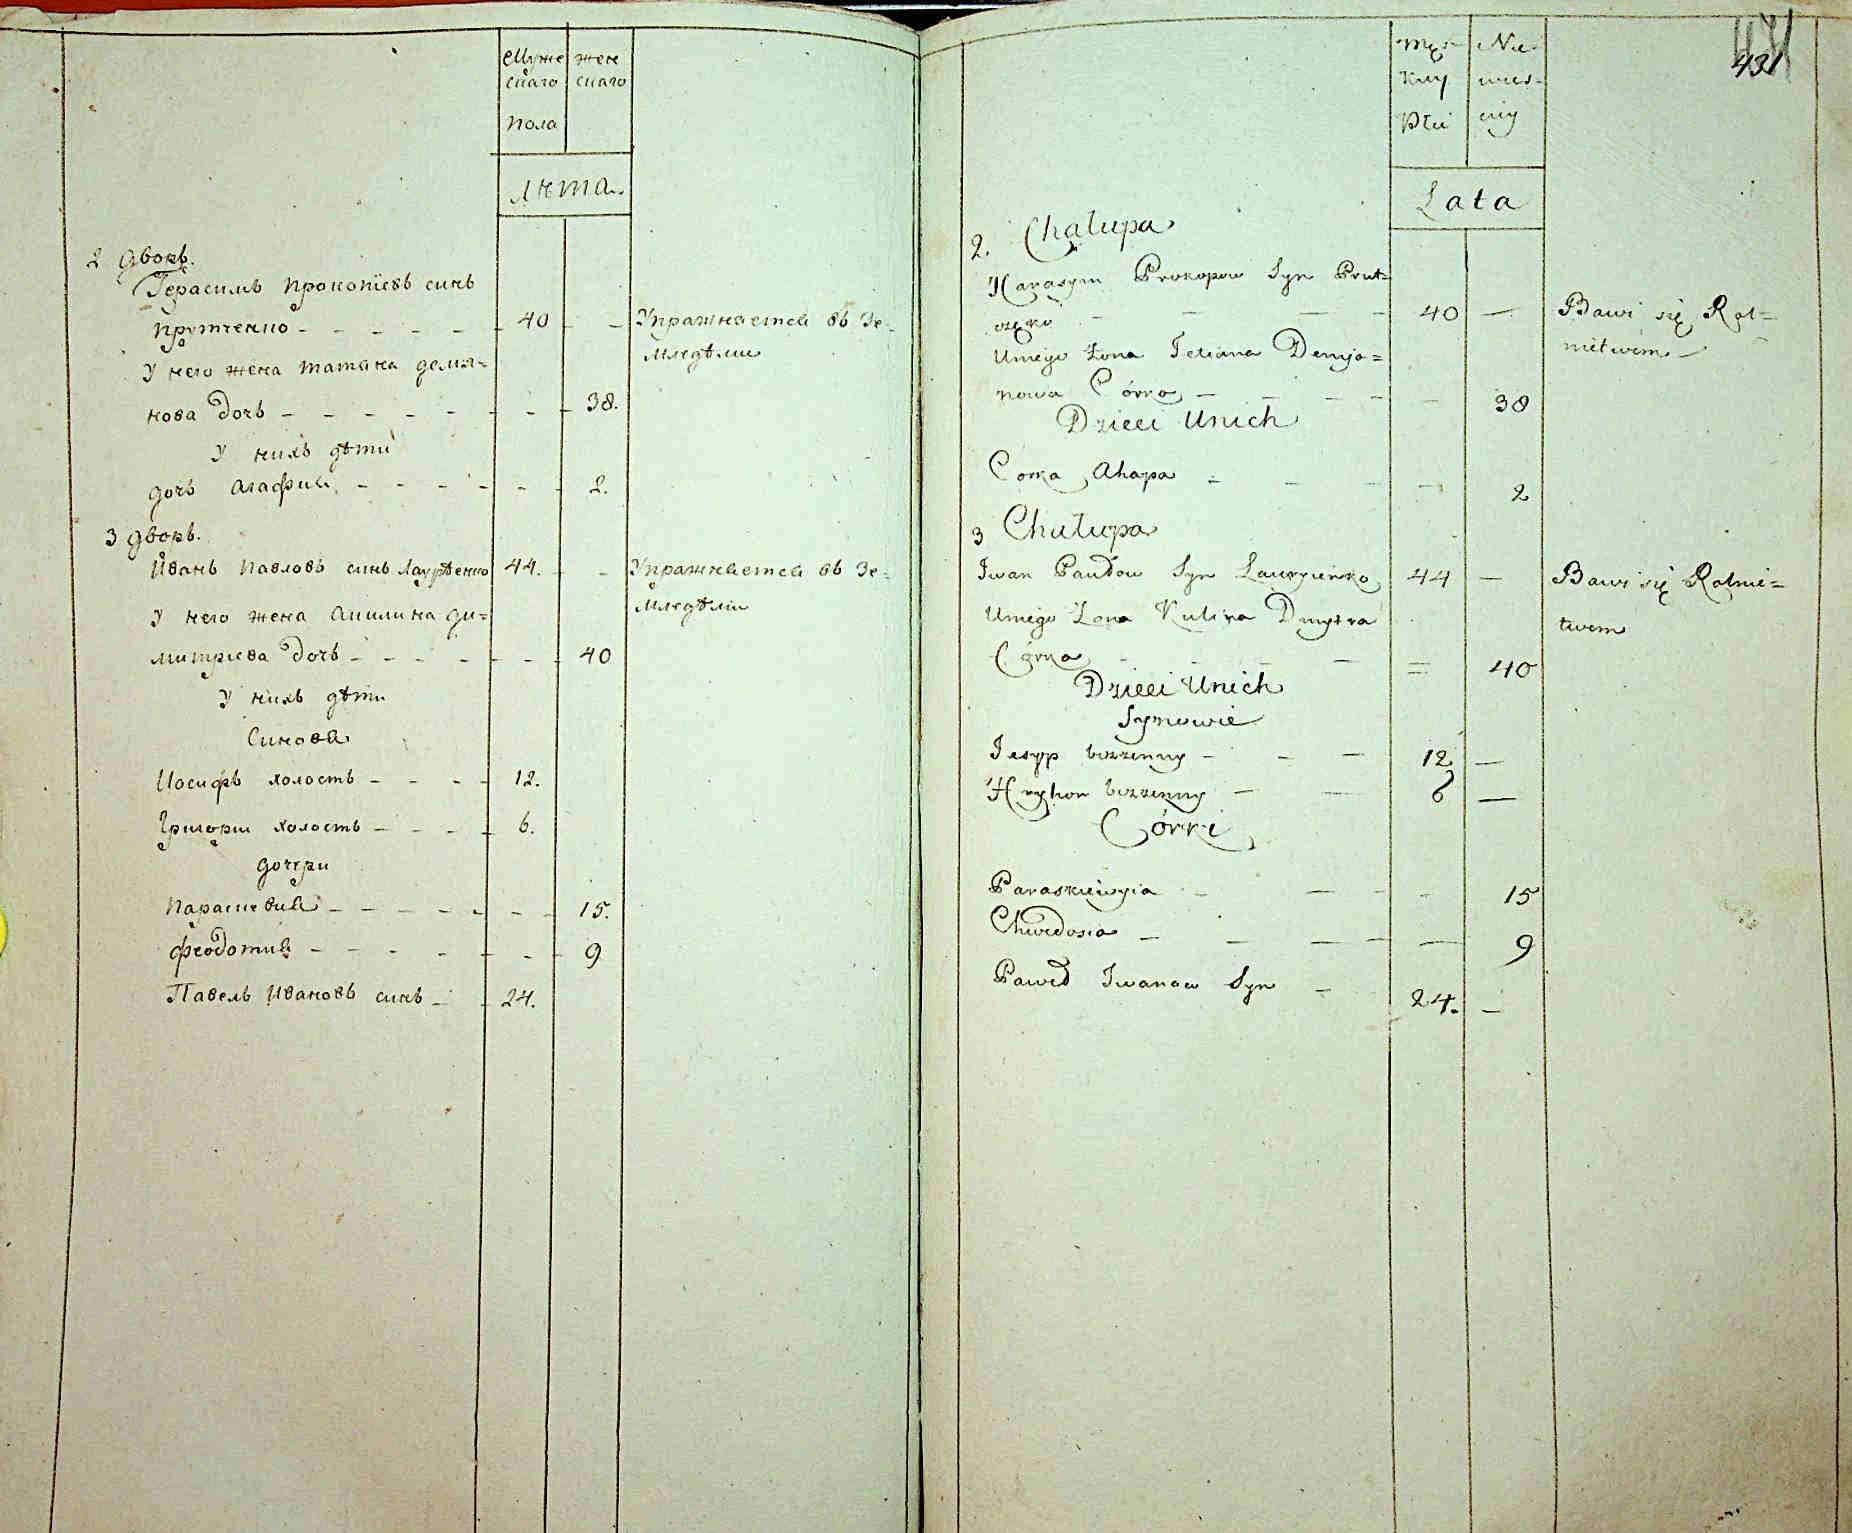 Муже жен
скаго скаго
пола
лѣта
2 дворъ.
Герасимъ прокопіевъ синъ
прутченко 40 Упражняется въ Зе-
мледѣлии
У него жена татяна демя=
нова дочъ 38.
У нихъ дѣти
дочъ агафия 2.
3 дворъ.
Иванъ павловъ синъ Лаурѣенко 44. Упражняется въ Зе-
мледѣлии
У него жена акилина ди=
митриева дочъ 40
У нихъ дѣти
Синовя
Иосифъ холостъ 12.
Григории холостъ 6.
дочери
Параскевия 15.
феодотия 9
Павелъ Ивановъ синъ 24.
431
Męz- Nie-
kiey wieś-
Płci ciey
Lata
2. Chałupa
Harasym Prokopow Syn Prut=
częko 40 Bawi się Rol=
nictwem
Uniego Żona Tetiana Demja=
nowa Córka 38
Dzieci Unich
Corka Ahapa 2
3 Chałupa
Iwan Pawłow Syn Lawryienko 44 Bawi się Rolnic=
twem
Uniego Zona Kulina Dmytra
Córka 40
Dzieci Unich
Synowie
Iesyp bezzenny 12
Hryhor bezzenny 6
Córki
Paraskiewyia 15
Chwedosia 9
Paweł Iwanow Syn 24.